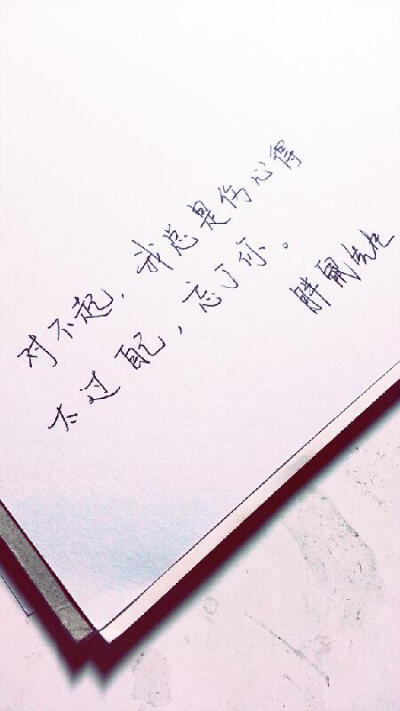 对不起，我总是伤心得
太过自己，忘了你。
胖鼠先生